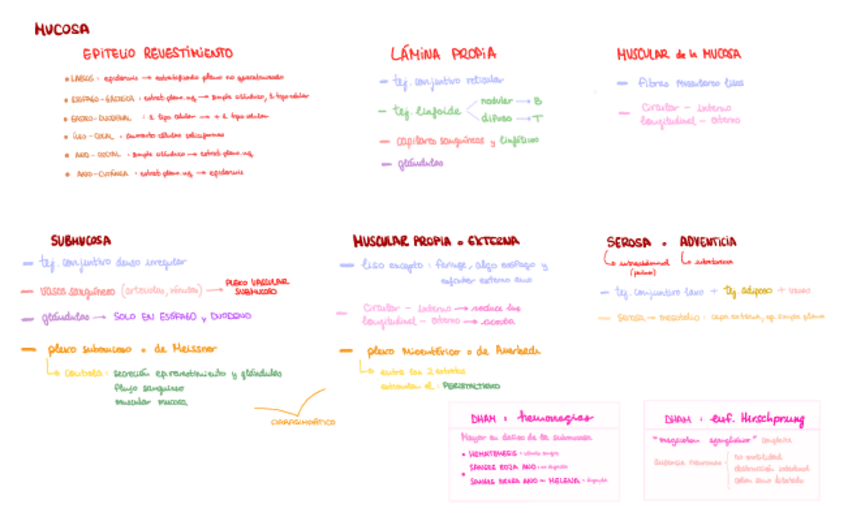 MUCOSA
EPITELIO REVESTIMIENTO
LABIOS: epidermis → estratificado plano no queratinizado
ESÓFAGO-GÁSTRICA: estrat. plano nq → simple cilíndrico, 5 tipo celular
GASTRO-DUODENAL: 5 tipo celular → 4 tipo celular
ÍLEO-COLAL: aumento células caliciformes
ANO-RECTAL: simple cilíndrico → estrat. plano nq
ANO-CUTÁNEA: estrat. plano nq → epidermis
LÁMINA PROPIA
tej. conjuntivo reticular
tej. linfoide
nodular → B
difuso → T
capilares sanguíneos y linfáticos
glándulas
MUSCULAR de la MUCOSA
fibras musculares lisas
Circular - interno
longitudinal - externo
SUBMUCOSA
tej. conjuntivo denso irregular
vasos sanguíneos (arteriolas, vénulas) → PLEXO VASCULAR SUBMUCOSO
glándulas → SOLO EN ESÓFAGO y DUODENO
plexo submucoso o de Meissner
controla: secreción ep. revestimiento y glándulas
flujo sanguíneo
muscular mucosa
PARASIMPÁTICO
MUSCULAR PROPIA o EXTERNA
liso excepto: faringe, algo esófago y
esfínter externo ano
Circular - interno → reduce luz
longitudinal - externo → acorta
plexo mientérico o de Auerbach
entre los 2 estratos
PERISTALTISMO
SEROSA o ADVENTICIA
tej. conjuntivo laxo + tej. adiposo + vasos
SEROSA → mesotelio: capa externa, ep. simple plano
DHAM: hemorragias
Mayor en daños de la submucosa
HEMATEMESIS = vómito sangre
SANGRE ROJA ANO =
SANGRE NEGRA ANO = MELENA =
DHAM: enf. Hirschprung
"megacolon aganglionar" congénito
Ausencia neuronas
no motilidad
obstrucción intestinal
colon sano dilatado